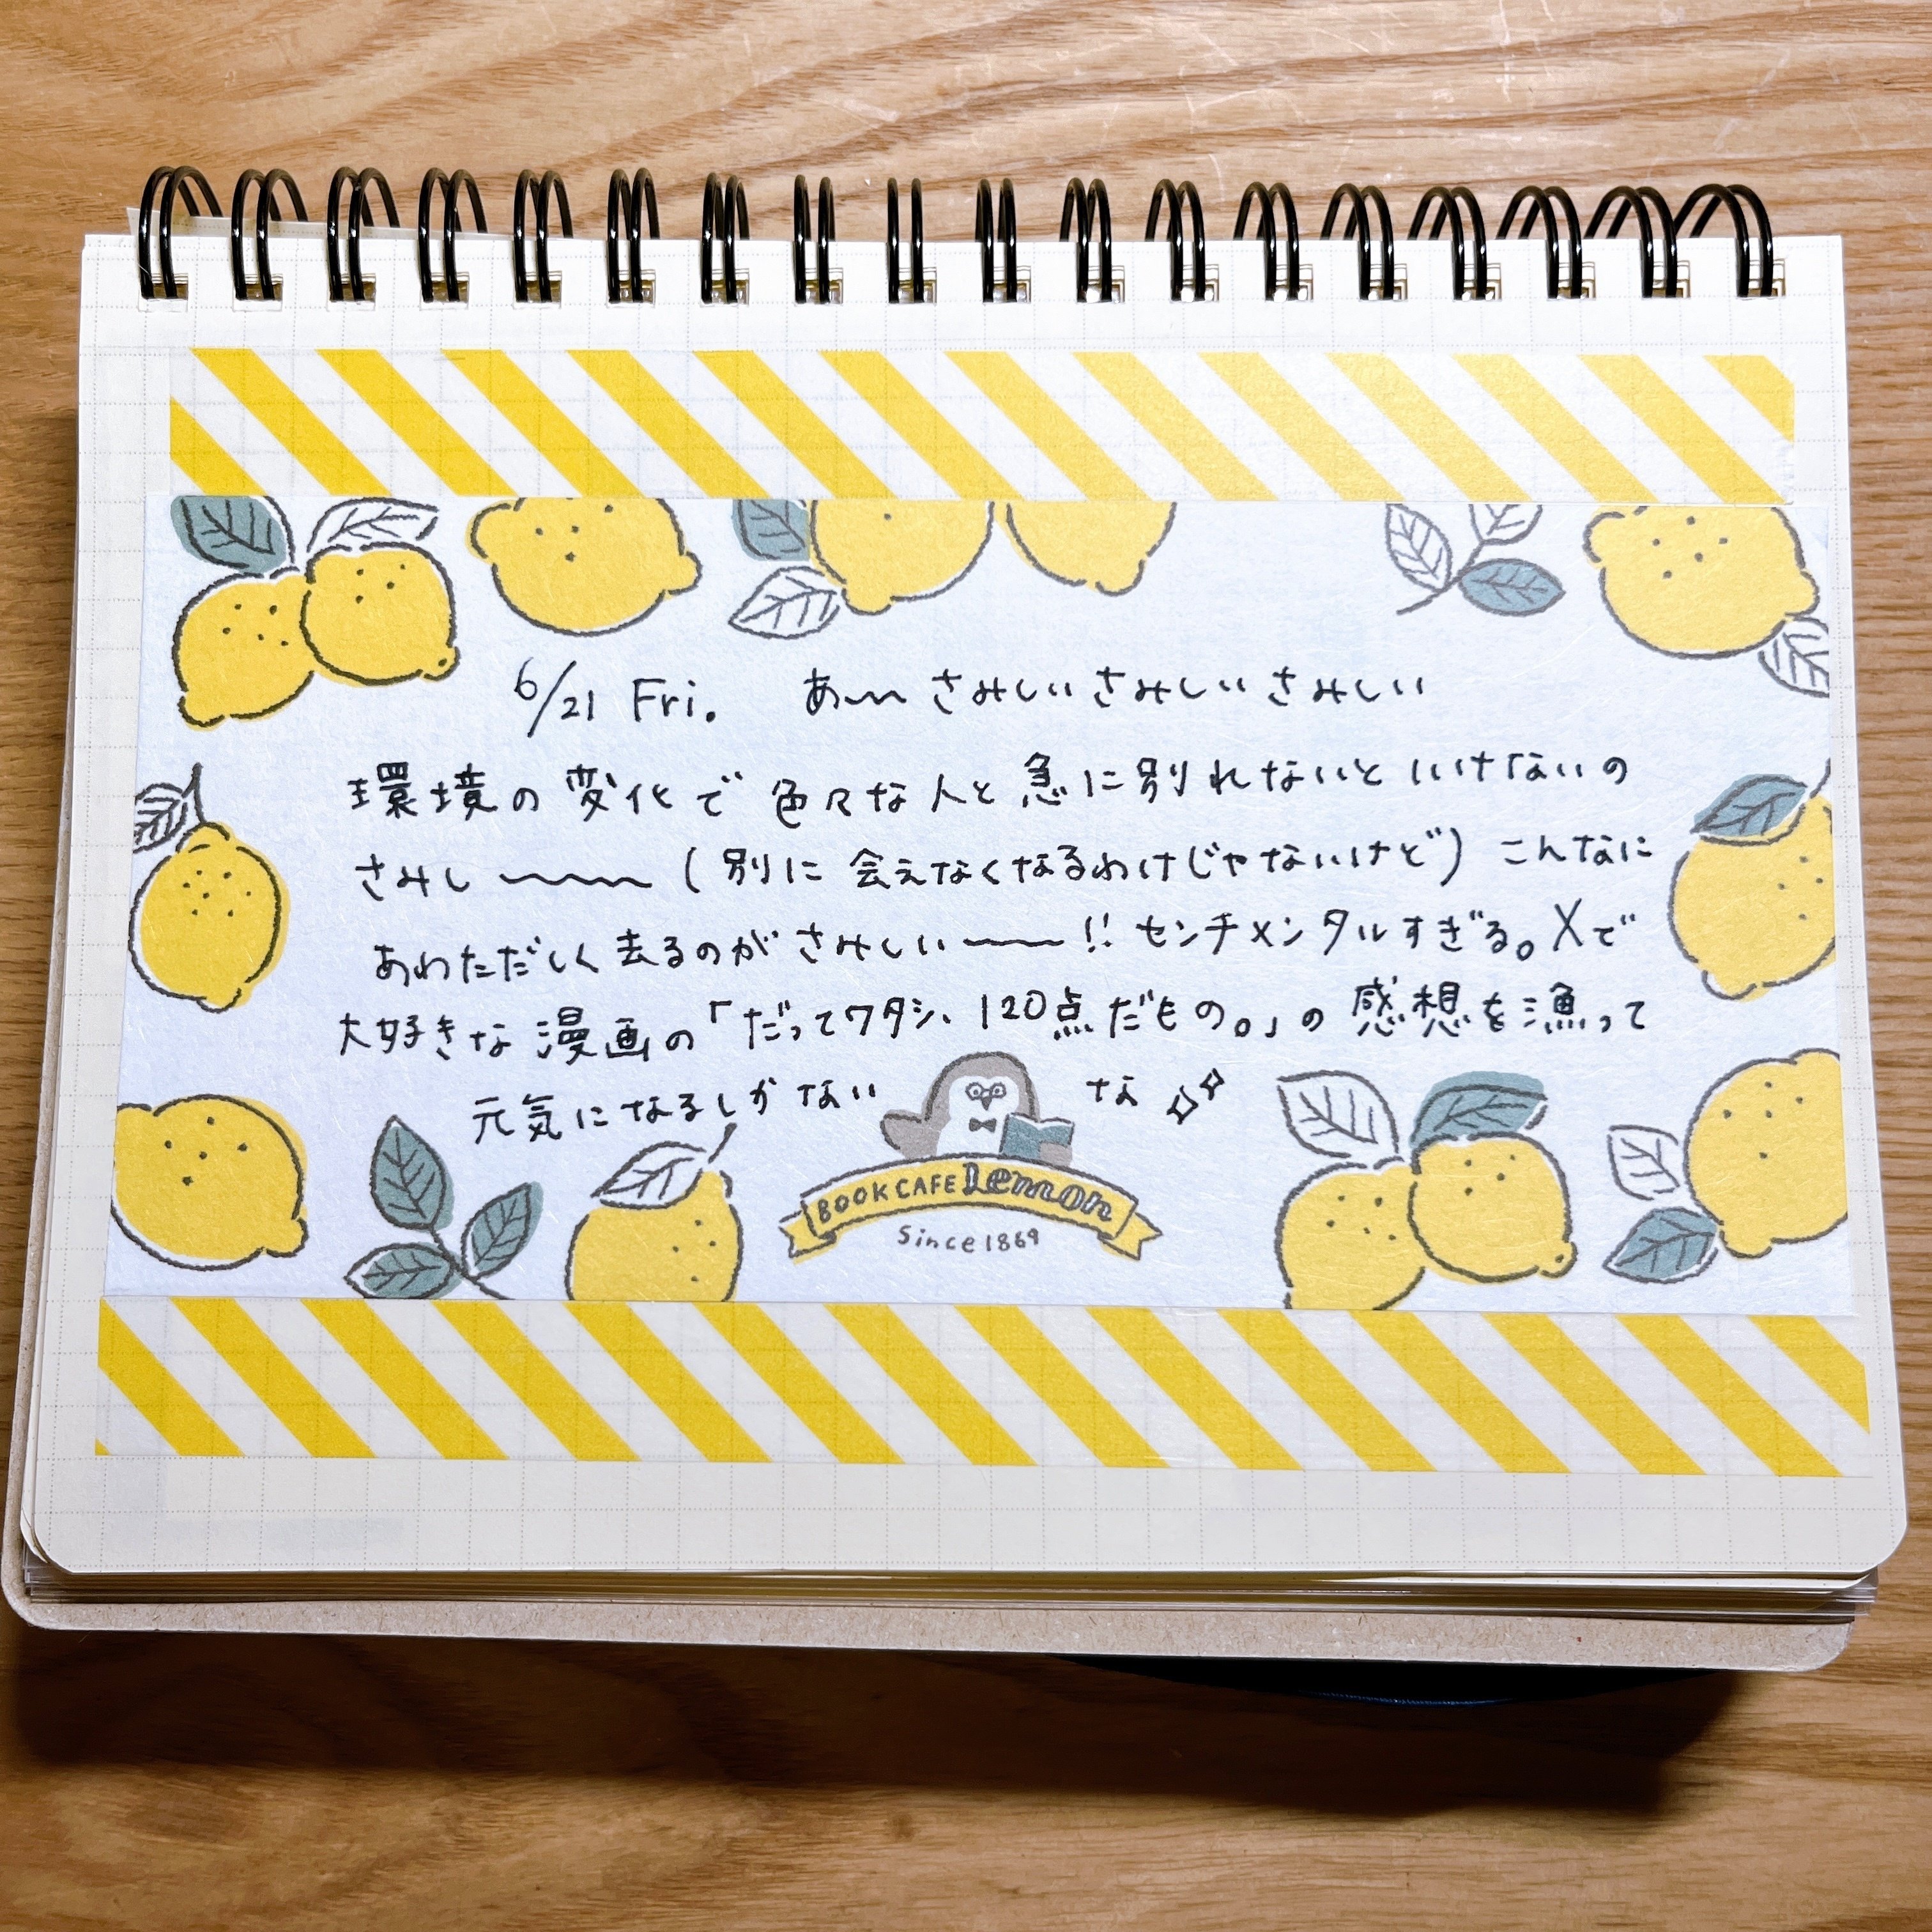 6/21 Fri. あ〜〜 さみしいさみしいさみしい
環境の変化で色々な人と急に別れないといけないの
さみし〜〜〜〜(別に会えなくなるわけじゃないけど)こんなに
あわただしく去るのがさみしい〜〜〜!!センチメンタルすぎる。Xで
大好きな漫画の「だってワタシ、120点だもの。」の感想を漁って
元気になるしかない な
BOOK CAFE Lemon
Since 1869